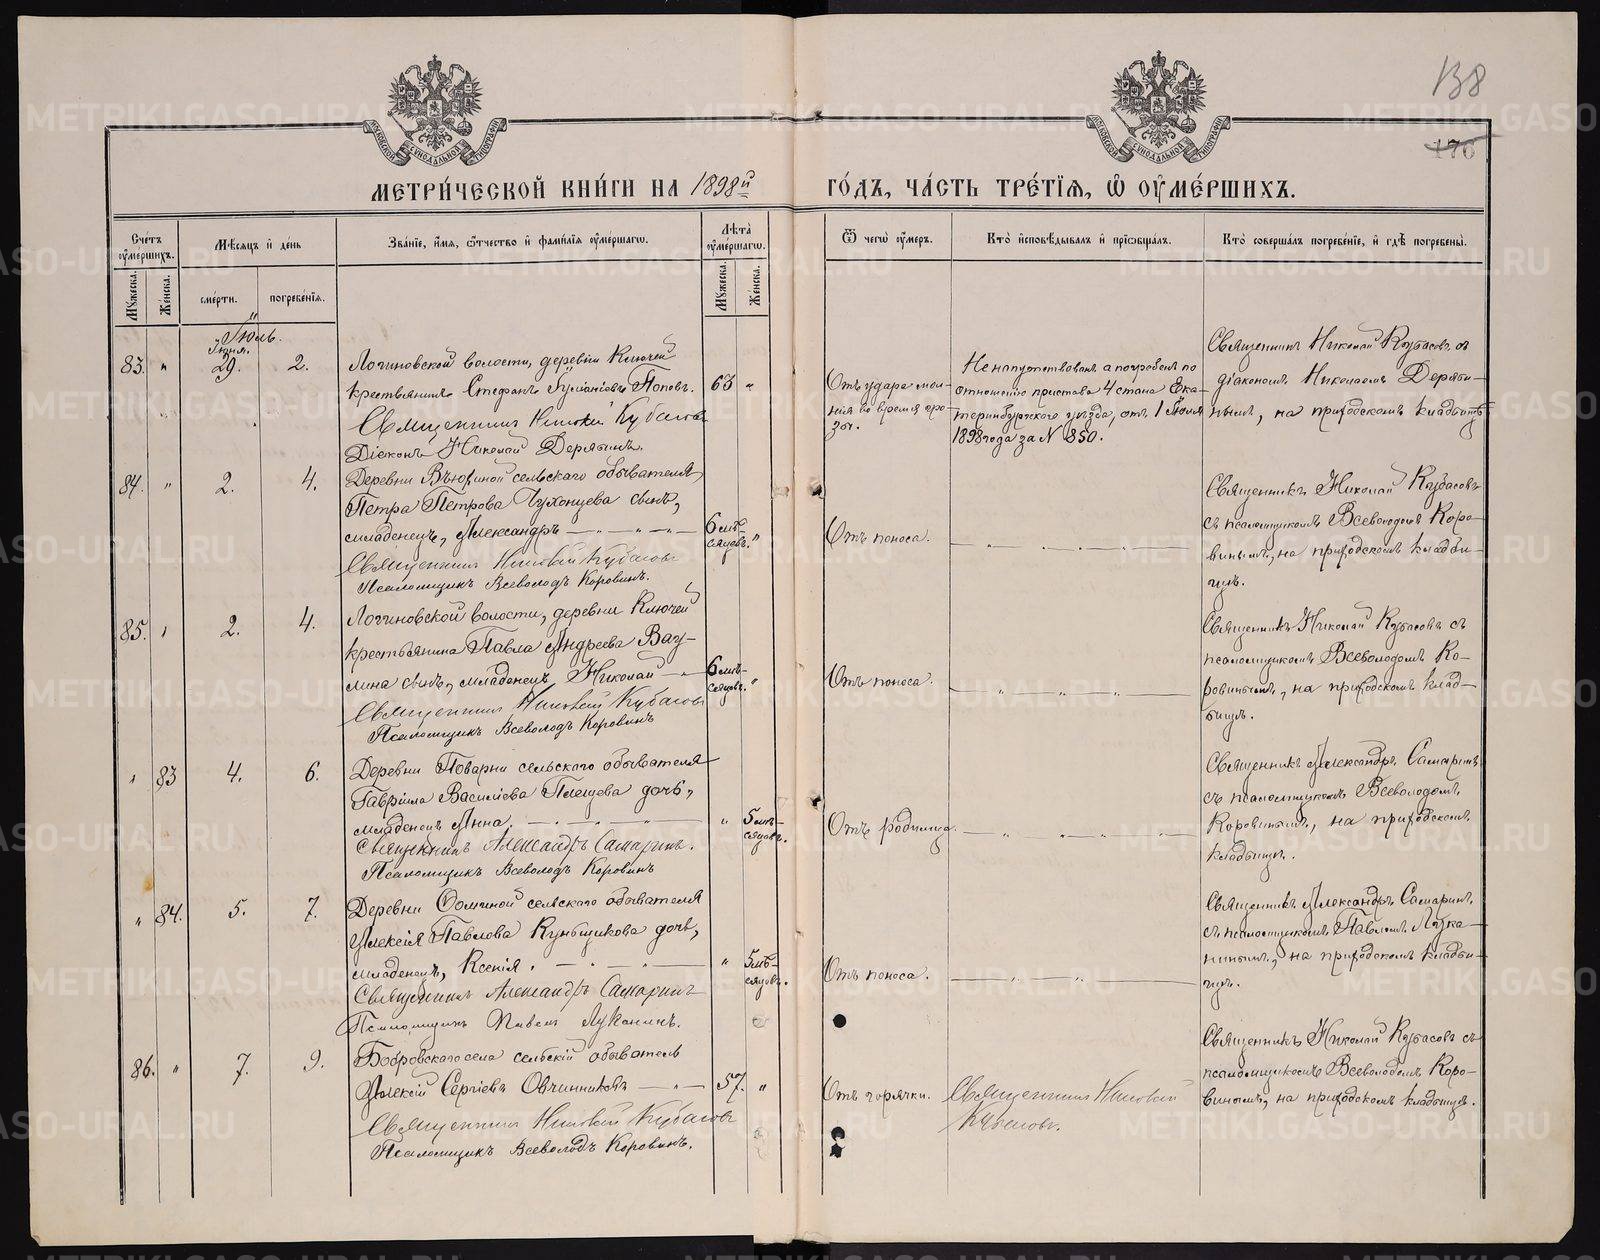 138
176
МЕТРИ́ЧЕСКОЙ КНИ́ГИ НА 1898й ГО́ДЪ, ЧА́СТЬ ТРЕ́ТІЯ, Ѡ ОУМЕ́РШИХЪ.
Сче́тъ оуме́ршихъ.
Мѣсяцъ и день
Зва́ніе, и́мя, ѻ҆́тчество и фами́лія оуме́ршагѡ.
Лѣта оуме́ршагѡ.
Ѿ чегѡ̀ оу́меръ.
Кто̀ исповѣ́дывалъ и прїѡбща́лъ.
Кто̀ соверша́лъ погребе́ніе, и гдѣ̀ погребены̀.
Мꙋжеска.
Же́нска.
сме́рти.
погребе́нія.
Мꙋжеска.
Же́нска.
Іюль.
Іюня.
83. " 29. 2.
Логиновской волости, деревни Ключей
крестьянинъ Стефанъ Поповъ.
63 "
Священникъ Николай Кубасовъ
Діаконъ Николай Дерябинъ.
Отъ удара мол-
ніи во время гро-
зы.
Не напутствованъ а погребенъ по
отношенію пристава 4 стана Ека-
теринбургскаго уѣзда, отъ 1 Іюля
1898 года за № 850.
Священникъ Николай Кубасовъ съ
діакономъ Николаемъ Деряби-
нымъ, на приходскомъ кладбищѣ
84. " 2. 4.
Деревни Вьюхиной сельскаго обывателя
Петра Петрова Чухонцева сынъ,
младенецъ, Александръ
6 мѣ-
сяцевъ. "
Священникъ Николай Кубасовъ
Псаломщикъ Всеволодъ Коровинъ.
Отъ поноса.
Священникъ Николай Кубасовъ
съ псаломщикомъ Всеволодомъ Коро-
винымъ, на приходскомъ кладби-
щѣ.
85. " 2. 4.
Логиновской волости, деревни Ключей
крестьянина Павла Андреева Вау-
лина сынъ, младенецъ Николай
6 мѣ-
сяцевъ. "
Священникъ Николай Кубасовъ
Псаломщикъ Всеволодъ Коровинъ
Отъ поноса.
Священникъ Николай Кубасовъ съ
псаломщикомъ Всеволодомъ Ко-
ровинымъ, на приходскомъ клад-
бищѣ.
" 83 4. 6.
Деревни Поварни сельскаго обывателя
Гавріила Василіева Плещева дочь,
младенецъ Анна.
" 5 мѣ-
сяцевъ.
Священникъ Александръ Самаринъ.
Псаломщикъ Всеволодъ Коровинъ
Отъ родимца.
Священникъ Александръ Самаринъ
съ псаломщикомъ Всеволодомъ
Коровинымъ, на приходскомъ
кладбищѣ.
" 84. 5. 7.
Деревни Фоминой сельскаго обывателя
Алексія Павлова Кунщикова дочь,
младенецъ, Ксенія.
" 5 мѣ-
сяцевъ.
Священникъ Александръ Самаринъ
Псаломщикъ Павелъ Луканинъ.
Отъ поноса.
Священникъ Александръ Самаринъ
съ псаломщикомъ Павломъ Лука-
нинымъ, на приходскомъ кладби-
щѣ.
86. " 7. 9.
Бобровскаго села сельскій обыватель
Алексій Сергіевъ Овчинниковъ
57. "
Священникъ Николай Кубасовъ
Псаломщикъ Всеволодъ Коровинъ.
Отъ горячки.
Священникъ Николай
Кубасовъ.
Священникъ Николай Кубасовъ съ
псаломщикомъ Всеволодомъ Коро-
винымъ, на приходскомъ кладбищѣ.
METRIKI.GASO-URAL.RU